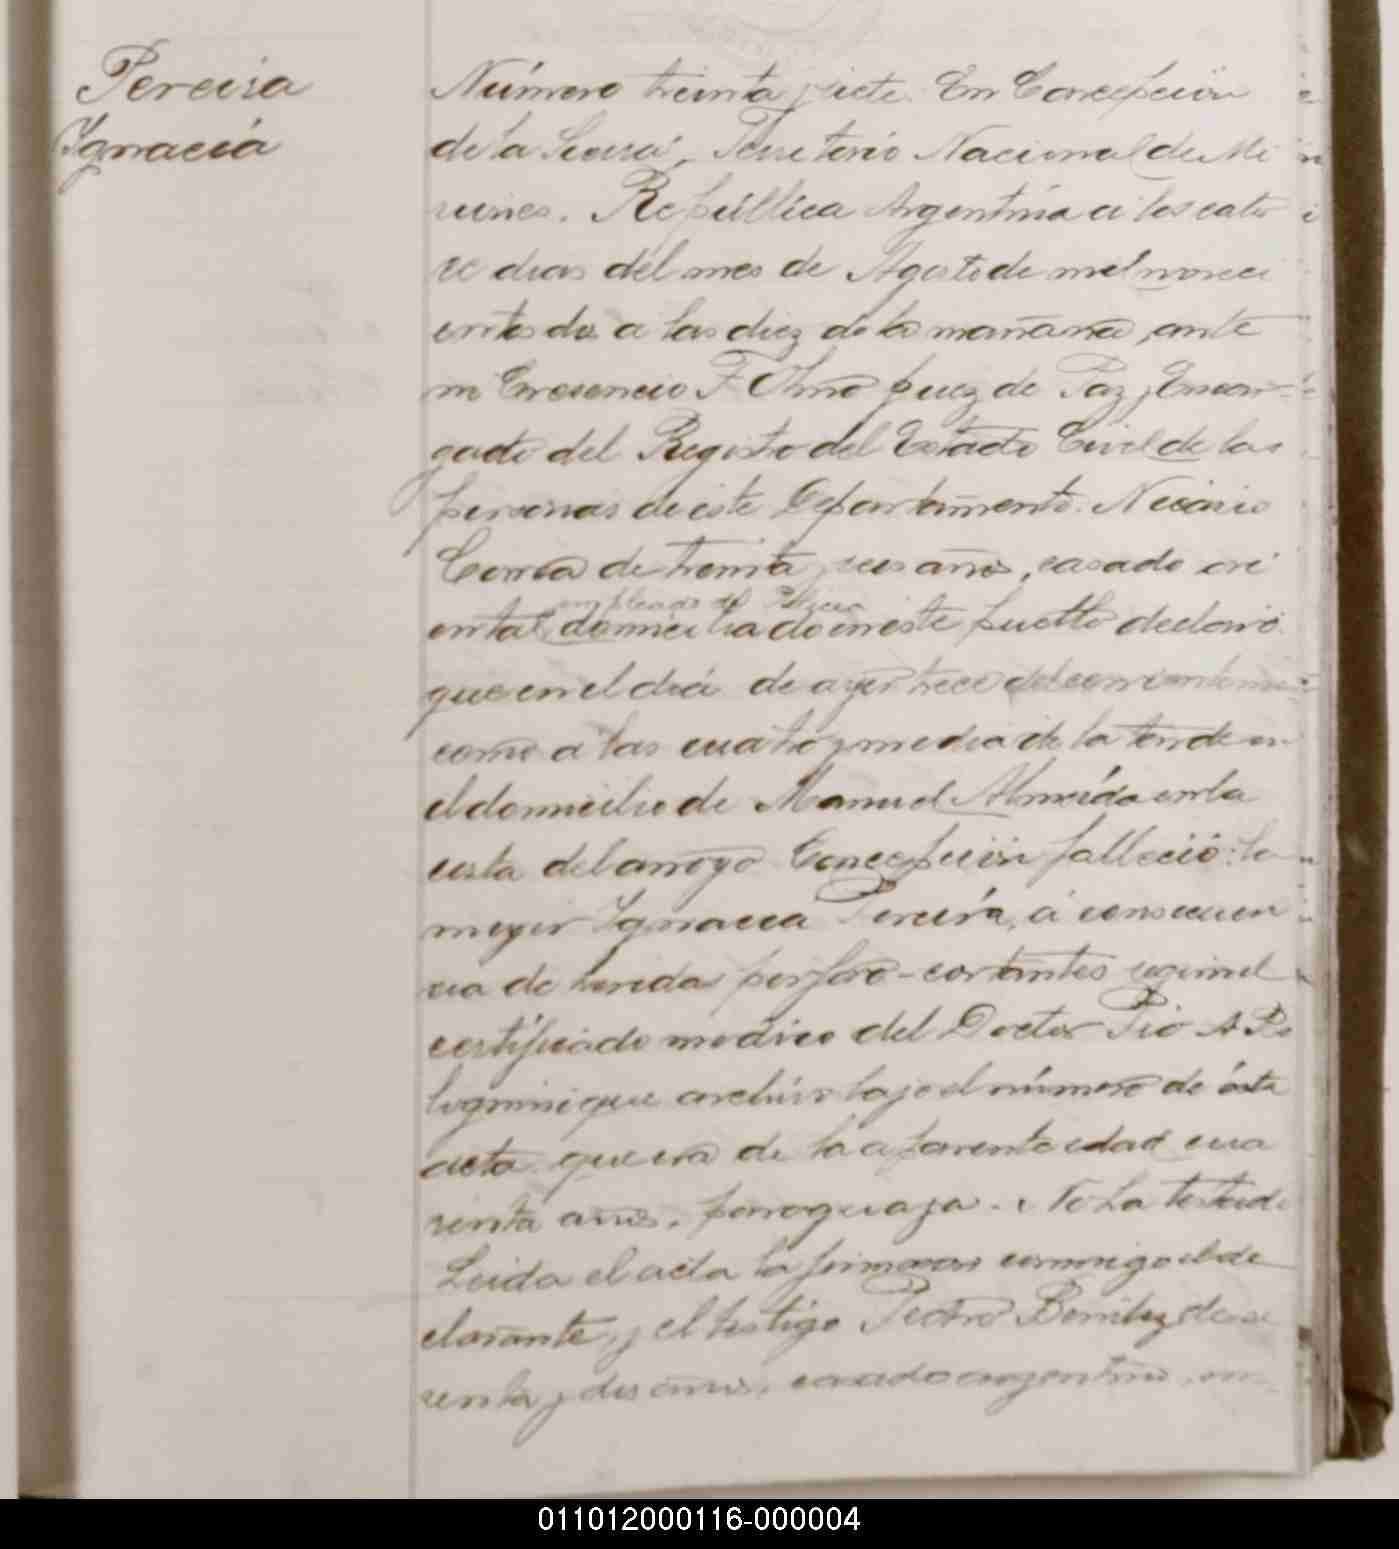 Pereira
Ignacia
Número treinta y siete. En Concepción
de la Sierra, Territorio Nacional de Mi
siones. República Argentina á los cator
ce dias del mes de Agosto de mil noveci
entos dos a las diez de la mañana, ante
mi Cresencio F. Olmo Juez de Paz y Encar
gado del Registro del Estado Civil de las
personas de este Departamento. Nicasio
Correa de treinta y seis años, casado ori
empleado de Policia
ental domiciliado en este pueblo declaró:
que en el dia de ayer trece del corriente mes
como a las cuatro y media de la tarde en
el domicilio de Manuel Almeida en la
costa del arroyo Concepción falleció: la
mujer Ignacia Pereira, á consecuen
cia de heridas perforo-cortantes segun el
certificado medico del Doctor Pio A
que archivo bajo el número de ésta
acta que era de la aparente edad cua
renta años, paraguaya. No ha testado
Leida el acta la firmaron conmigo el de
clarante, y el testigo Pedro Benitez de se
senta y dos años, casado argentino,
011012000116-000004